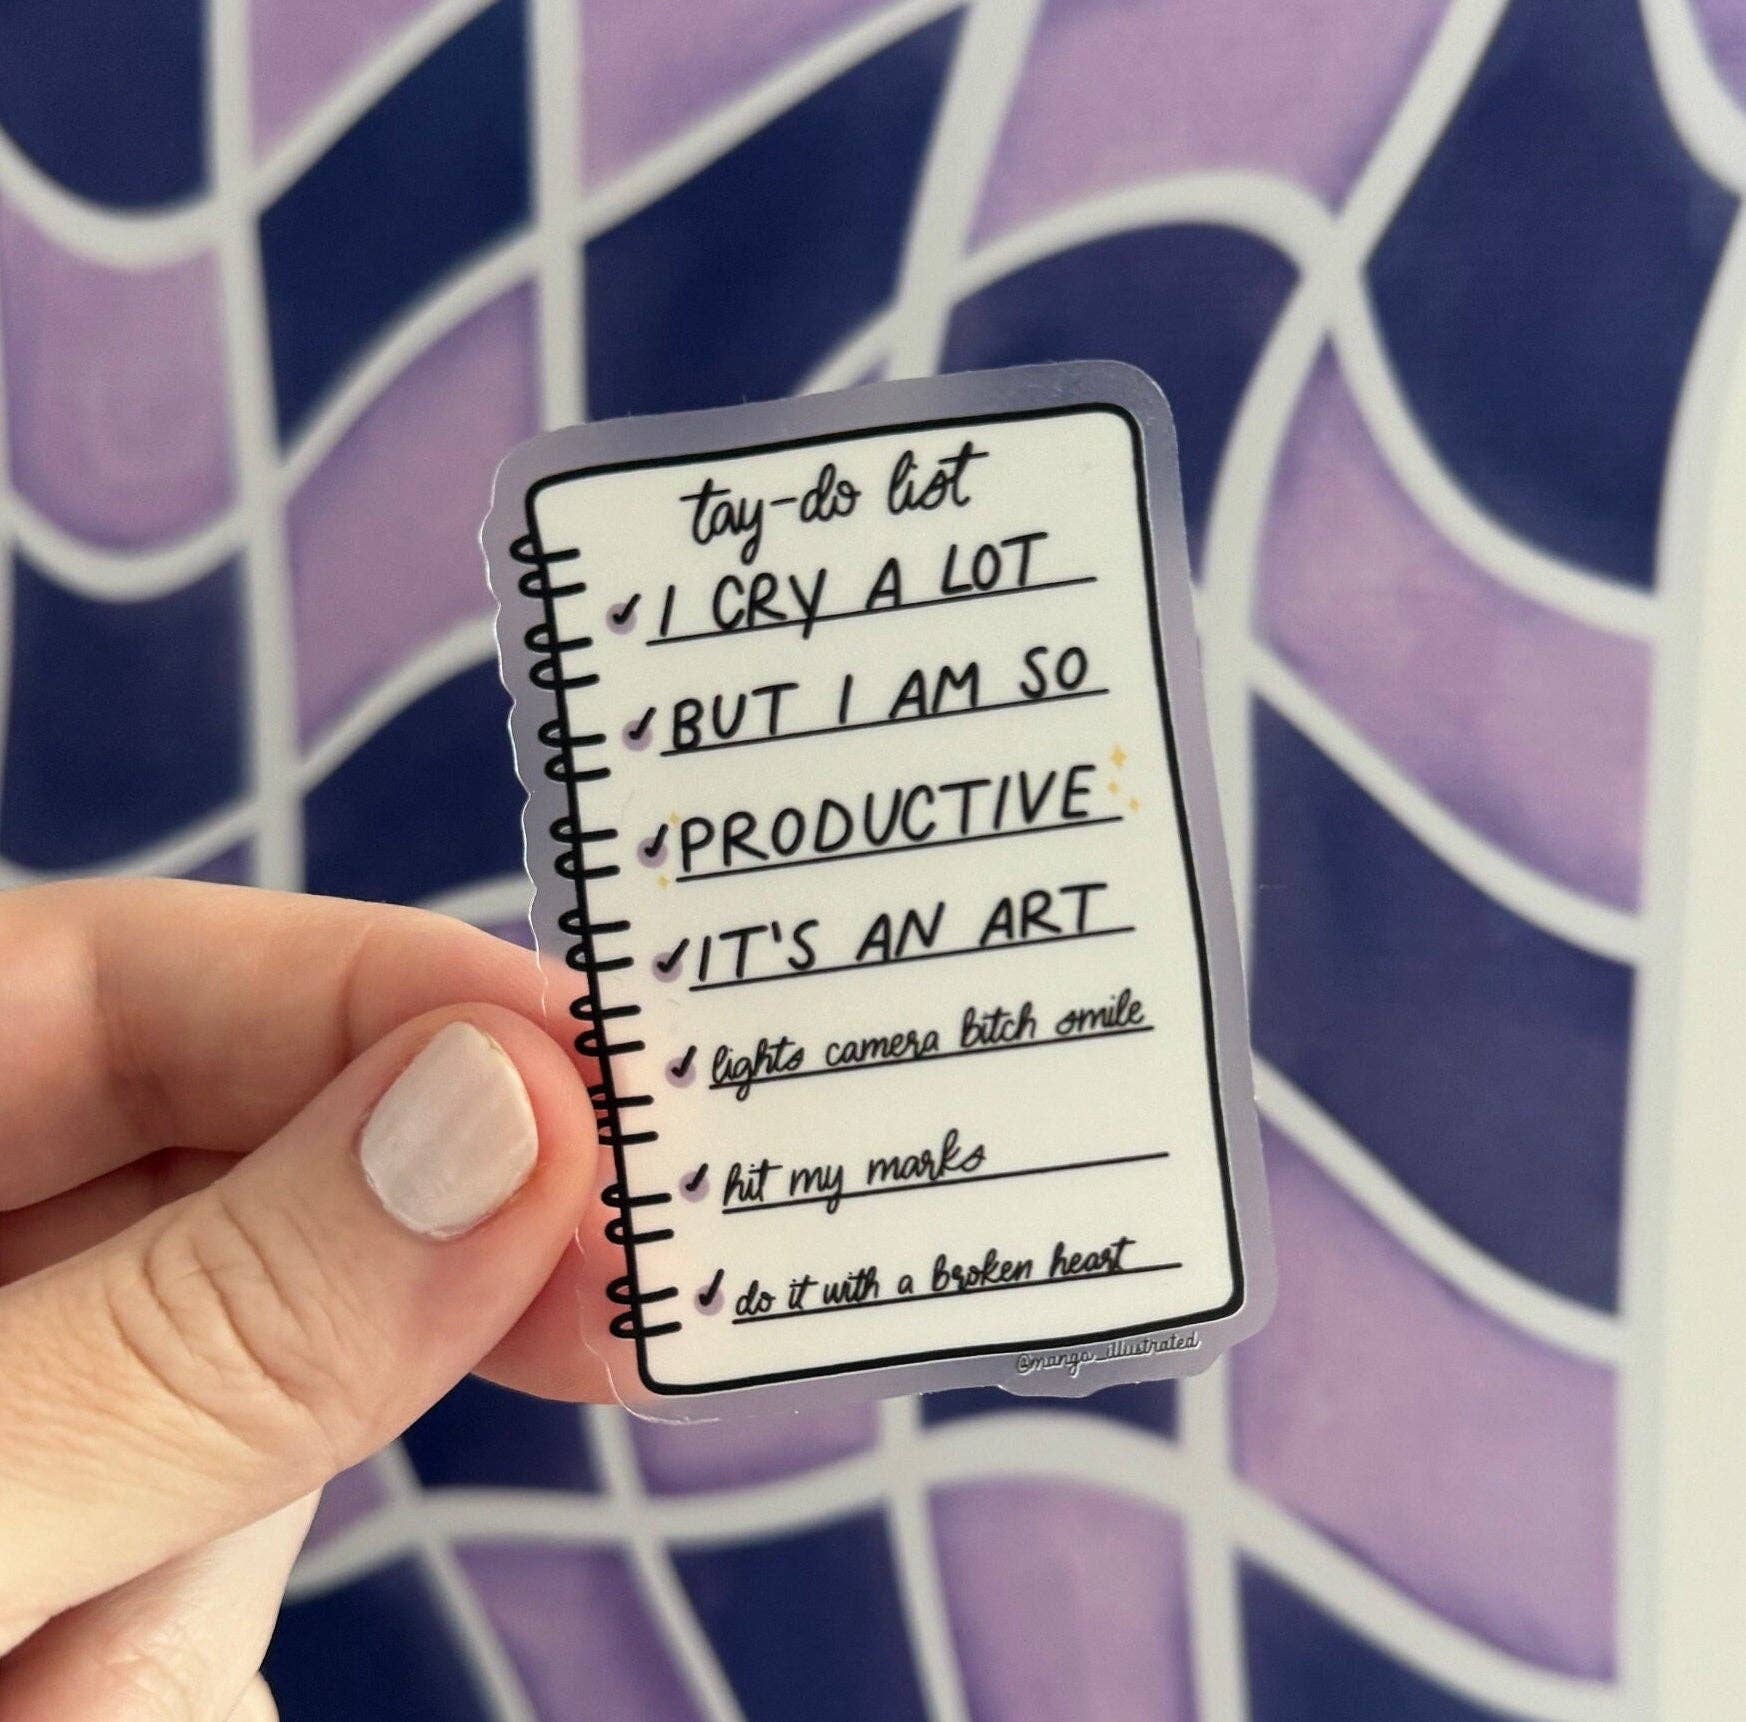 tay-do list
I CRY A LOT
BUT I AM SO
PRODUCTIVE
IT'S AN ART
lights camera bitch smile
hit my marks
do it with a broken heart
@manga_illustrated